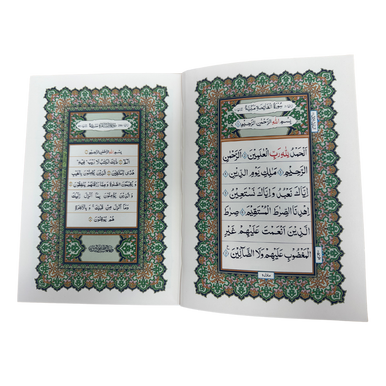 سُورَةُ الْفَاتِحَةِ مَكِّيَّة
بِسْمِ اللّٰهِ الرَّحْمٰنِ الرَّحِيْمِ
اَلْحَمْدُ لِلّٰهِ رَبِّ الْعٰلَمِيْنَ الرَّحْمٰنِ
الرَّحِيْمِ مٰلِكِ يَوْمِ الدِّيْنِ
اِيَّاكَ نَعْبُدُ وَاِيَّاكَ نَسْتَعِيْنُ
اِهْدِنَا الصِّرَاطَ الْمُسْتَقِيْمَ صِرَاطَ
الَّذِيْنَ اَنْعَمْتَ عَلَيْهِمْ غَيْرِ
الْمَغْضُوْبِ عَلَيْهِمْ وَلَا الضَّآلِّيْنَ
بِسْمِ اللّٰهِ الرَّحْمٰنِ الرَّحِيْمِ
الٓمّٓ ذٰلِكَ الْكِتٰبُ لَا رَيْبَ فِيْهِ
هُدًى لِّلْمُتَّقِيْنَ الَّذِيْنَ يُؤْمِنُوْنَ بِالْغَيْبِ
وَيُقِيْمُوْنَ الصَّلٰوةَ وَمِمَّا رَزَقْنٰهُمْ يُنْفِقُوْنَ
وَالَّذِيْنَ يُؤْمِنُوْنَ بِمَآ اُنْزِلَ اِلَيْكَ
وَمَآ اُنْزِلَ مِنْ قَبْلِكَ وَبِالْاٰخِرَةِ
هُمْ يُوْقِنُوْنَ